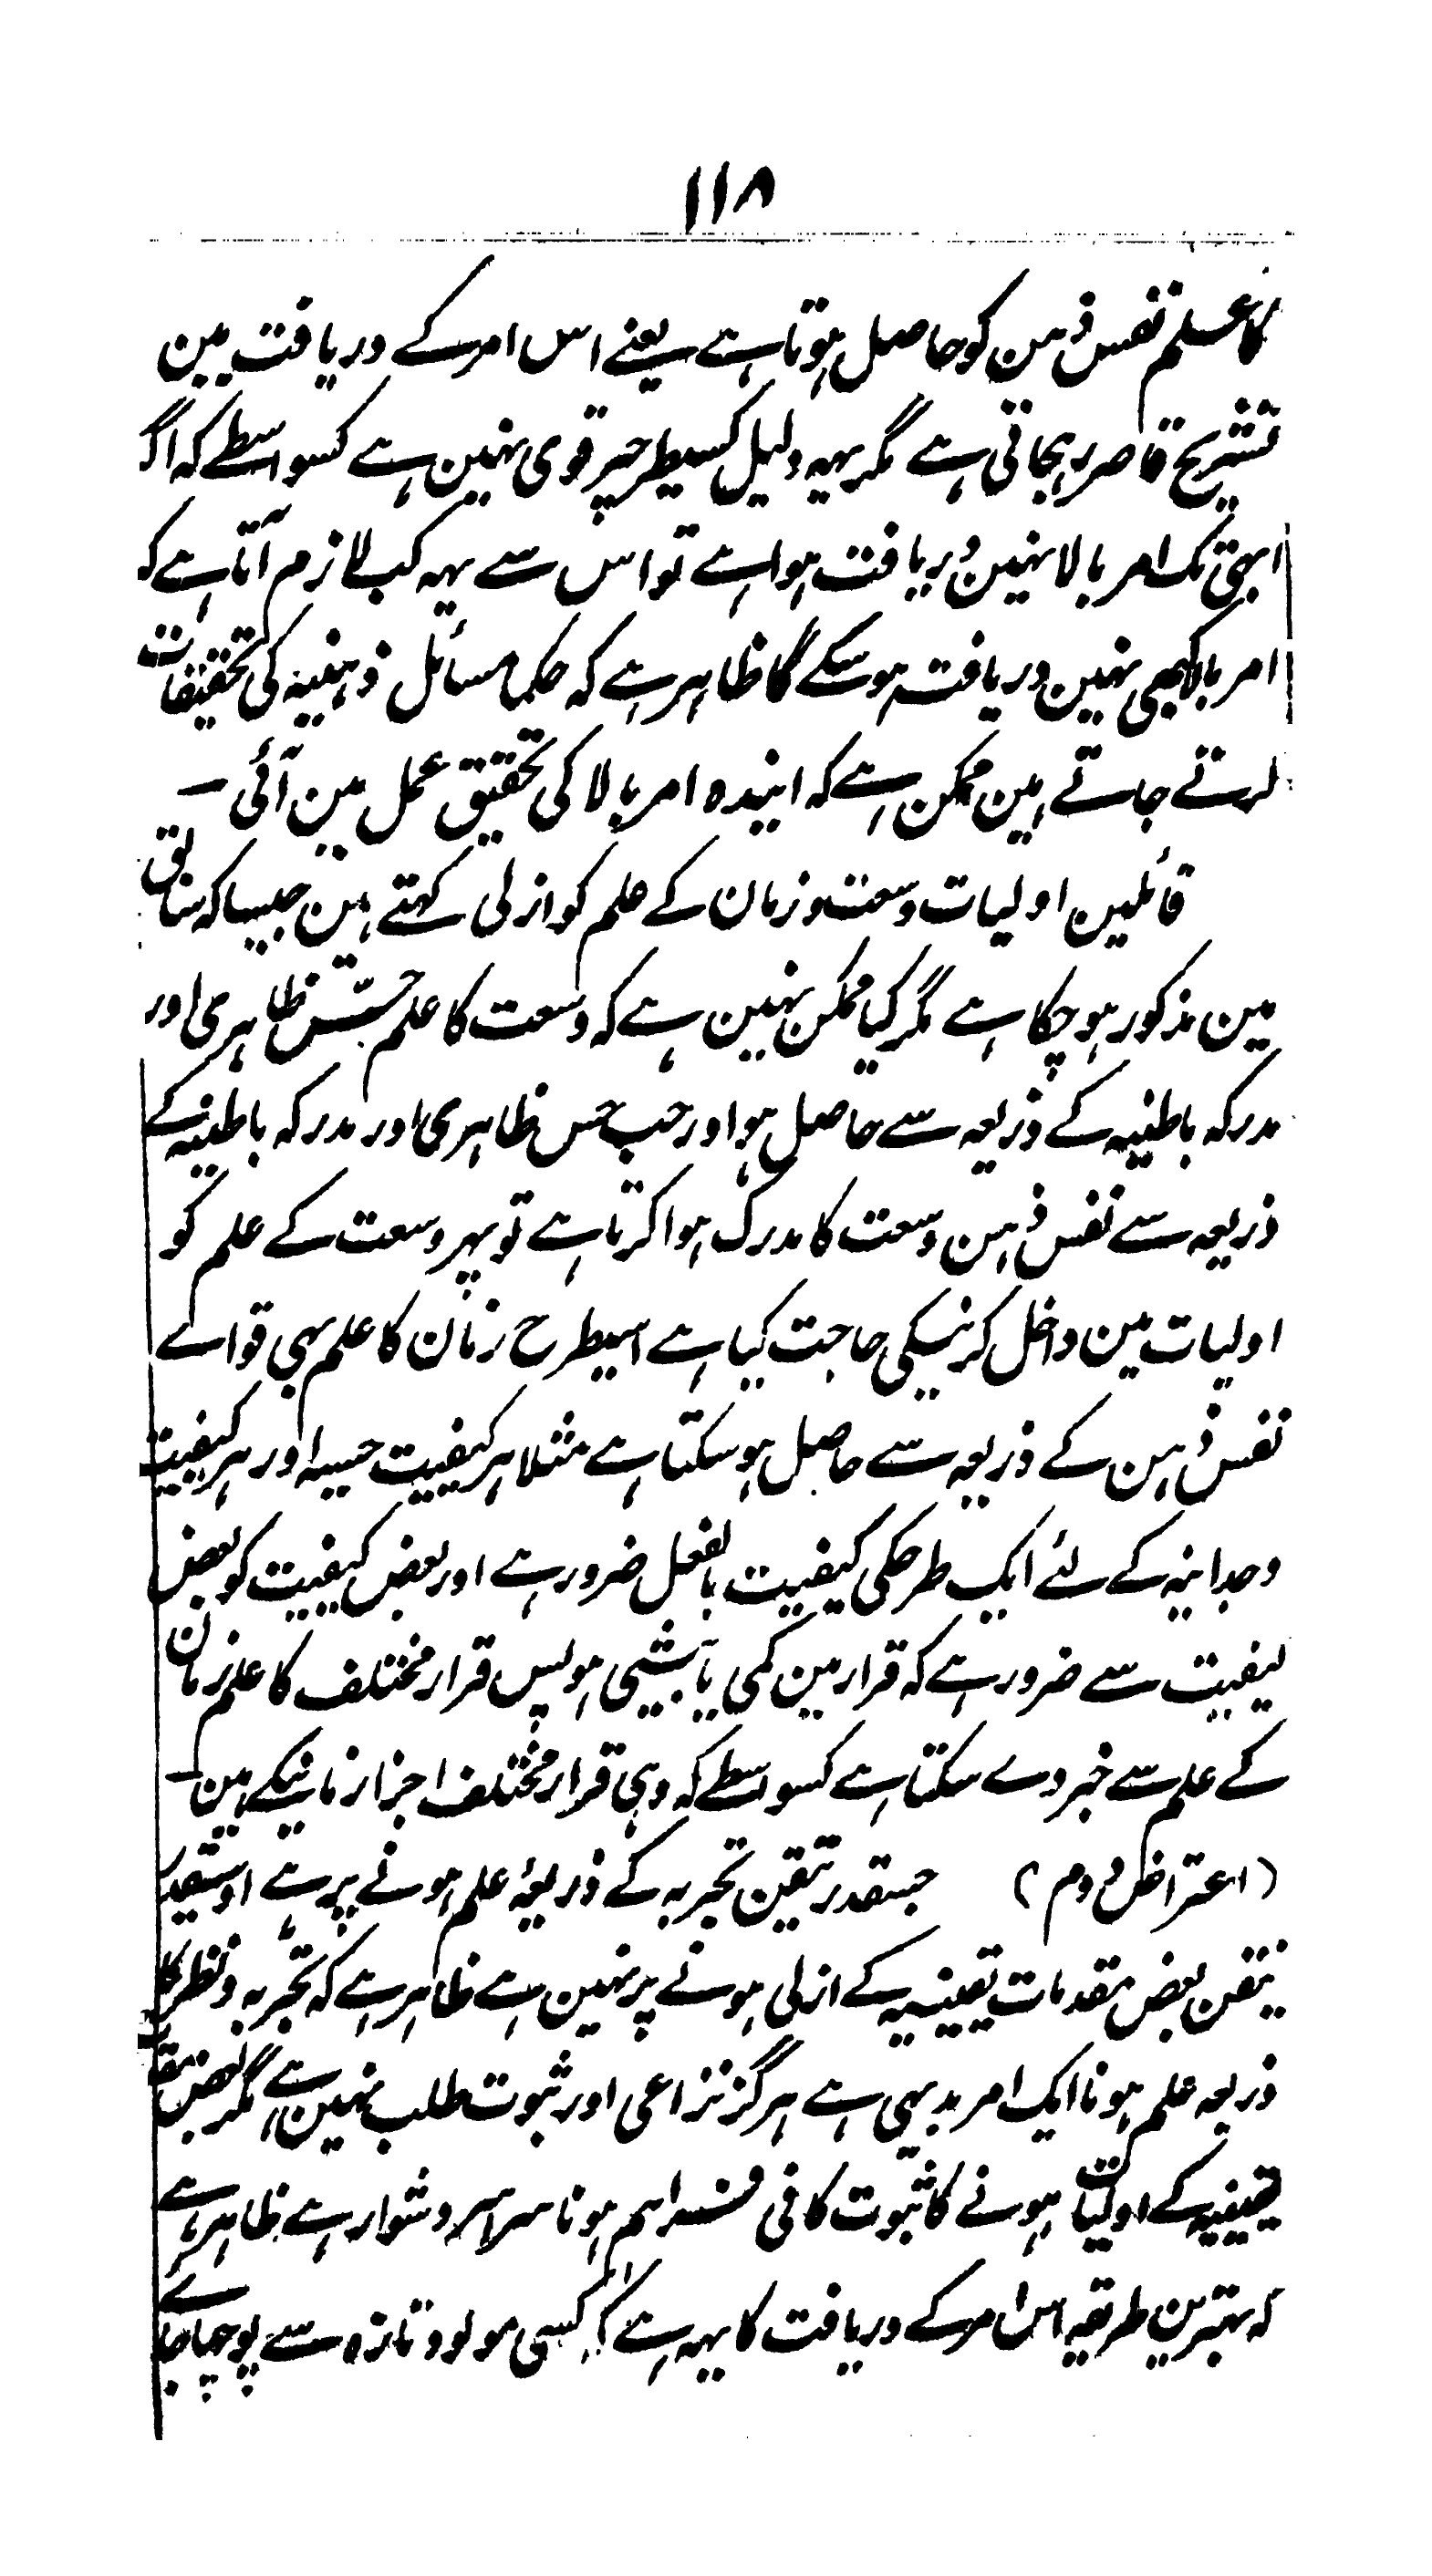 ۱۱۸
کا علم نفس ذہن کو حاصل ہوتا ہے یعنے اس امر کے دریافت مین
تشریح قاصر رہجاتی ہے مگر یہہ دلیل کسیطرحپر قوی نہین ہے کسواسطے کہ اگر
ابہی تک امر بالا نہین دریافت ہوا ہے تو اس سے یہہ کب لازم آتا ہے کہ
امر بالا کبھی نہین دریافت ہو سکے گا ظاہر ہے کہ حکما مسائل ذہنیہ کی تحقیقات
کرتے جاتے ہین ممکن ہے کہ ایندہ امر بالا کی تحقیق عمل مین آئی ـ
قائلین اولیات وسعت و زمان کے علم کو ازلی کہتے ہین جیسا کہ سابق
مین مذکور ہو چکا ہے مگر کیا ممکن نہین ہے کہ وسعت کا علم حسّ ظاہری اور
مدرکہ باطنیہ کے ذریعہ سے حاصل ہو اور جب حس ظاہری اور مدرکہ باطنیہ کے
ذریعہ سے نفس ذہن وسعت کا مدرک ہوا کرتا ہے تو پہر وسعت کے علم کو
اولیات مین داخل کرنیکی حاجت کیا ہے اسیطرح زمان کا علم بہی قواے
نفس ذہن کے ذریعہ سے حاصل ہو سکتا ہے مثلا ہر کیفیت حسیہ اور ہر کیفیت
وجدانیہ کے لئے ایک طرحکی کیفیت بالفعل ضرور ہے اور بعض کیفیت کو بعض
کیفیت سے ضرور ہے کہ قرار مین کمی یا بیشی ہو پس قرار مختلف کا علم زمان
کے علم سے خبر دے سکتا ہے کسواسطے کہ وہی قرار مختلف اجزا زمانیکے ہین ـ
(اعتراض دوم) جسقدر تیقن تجربہ کے ذریعۂ علم ہونے پر ہے اوسیقدر
تیقن بعض مقدمات یقینیہ کے ازلی ہونے پر نہین ہے ظاہر ہے کہ تجربہ و نظر کا
ذریعہ علم ہونا ایک امر بدیہی ہے ہرگز نزاعی اور ثبوت طلب نہین ہے مگر بعض
یقینیہ کے اولیات ہونے کا ثبوت کافی فراہم ہونا سراسر دشوار ہے ظاہر ہے
کہ بہترین طریقہ اس امر کے دریافت کا یہہ ہے کہ کسی مولود تازہ سے پوچہا جاے